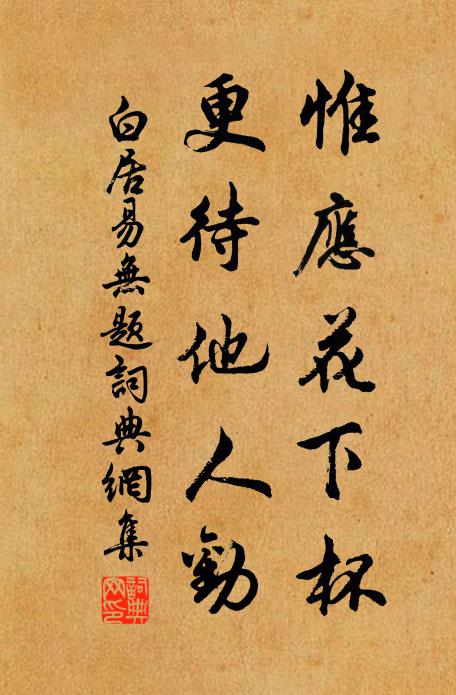 惟應花下杯
更待他人勸
白居易無題詞典網集
詞典網印